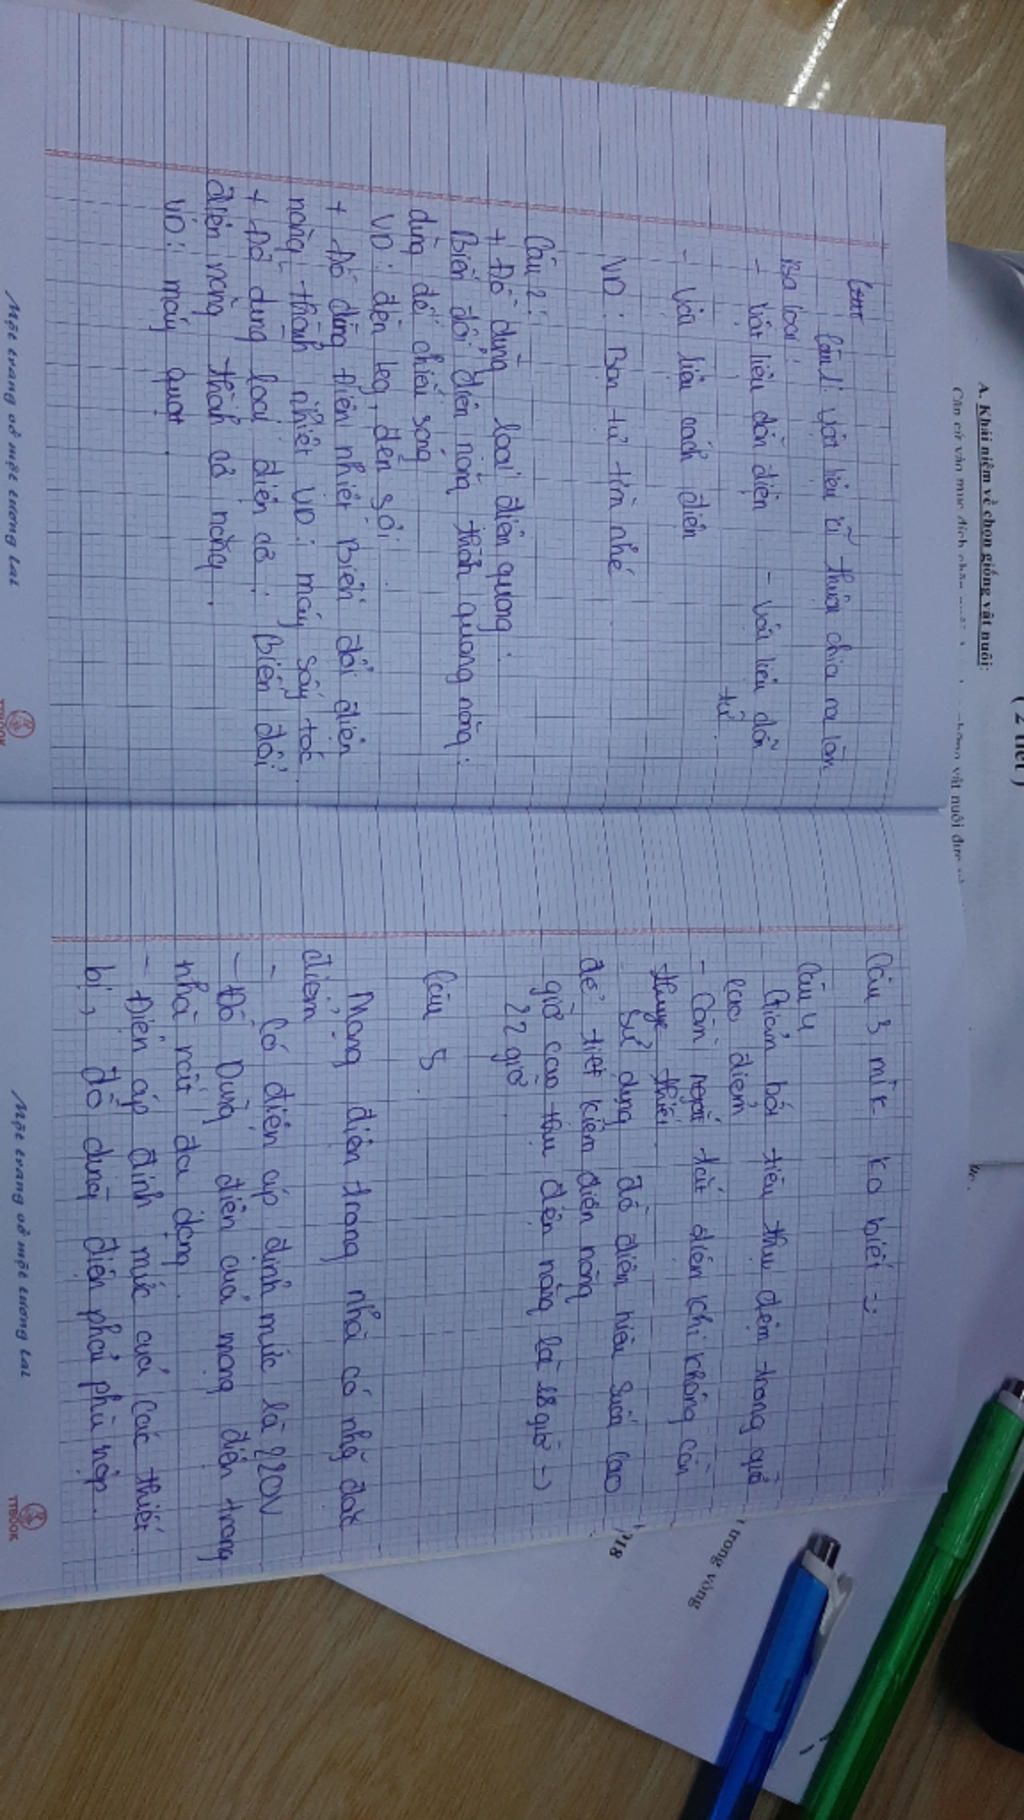 Câu 1: Vật liệu kĩ thuật chia ra làm
Ba loại:
- Vật liệu dẫn điện - Vật liệu dẫn
từ.
- Vật liệu cách điện
VD: Bạn tự tìm nhé
Câu 2:
+ Đồ dùng loại điện quang:
Biến đổi điện năng thành quang năng:
dùng để chiếu sáng
VD: đèn leg, đèn sợi
+ Đồ dùng điện nhiệt Biến đổi điện
năng thành nhiệt VD: máy sấy tóc.
+ Đồ dùng loại điện cơ: Biến đổi
điện năng thành cơ năng.
VD: máy quạt.
Một trang vở một tương lai
TTBOOK
Câu 3 mik ko biết :)
Câu 4
Giảm bới tiêu thụ điện trong giờ
cao điểm
- Cần ngắt tắt điện khi không cần
thiết.
Sử dụng đồ điện hiệu suất cao
để tiết kiệm điện năng
giờ cao thụ điện năng là 18 giờ ->
22 giờ.
Câu 5.
Mạng điện trong nhà có những đặc
điểm
- Có điện áp định mức là 220V
- Đồ Dùng điện của mạng điện trong
nhà rất đa dạng.
- Điện áp định mức của các thiết
bị, đồ dùng điện phải phù hợp.
Một trang vở một tương lai
TTBOOK
( 2 tiết )
A. Khái niệm về chọn giống vật nuôi:
Căn cứ vào mục đích
vật nuôi
trong vòng